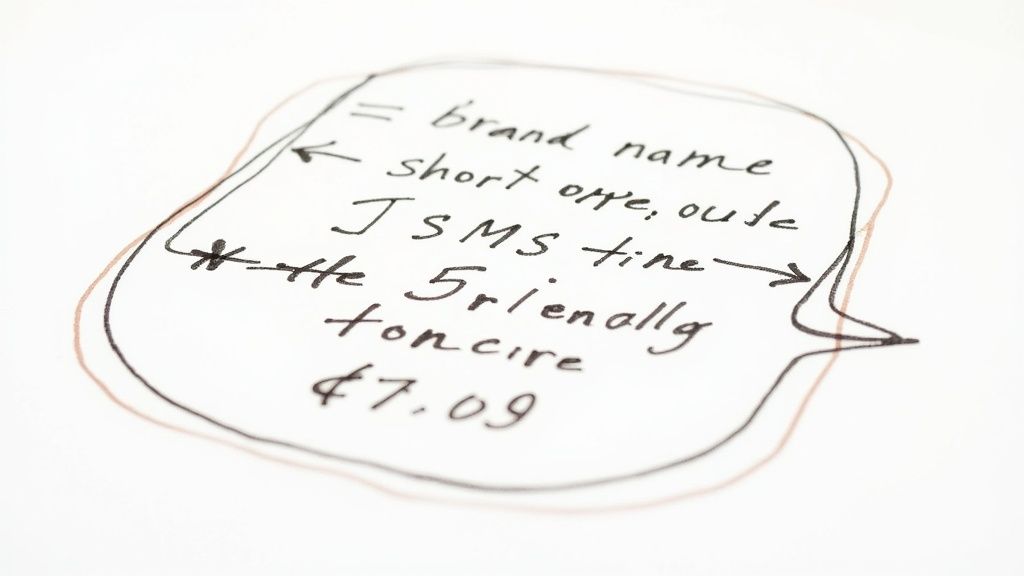 = brand name
← short oƞe, oute
J SMS tine →
tle 5rienally
toncire
¢7.09